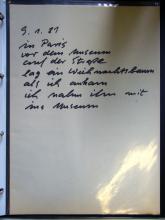 9.1.81
in Paris
vor dem Museum
auf der Straße
lag ein Weihnachtsbaum
als ich ankam
ich nahm ihn mit
ins Museum